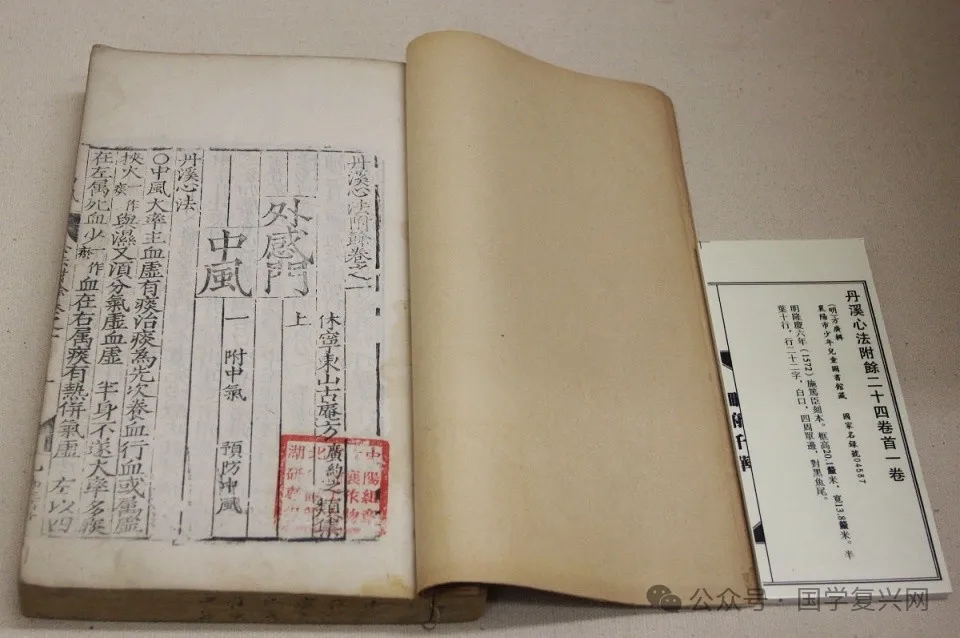 丹溪心法附餘卷之一
休寧東山古庵方廣約之類集
外感門 上
中風 一 附中氣 預防中風
丹溪心法
○中風大率主血虛有痰治痰為先次養血行血或屬虛
挾火一作痰與濕又湏分氣虛血虛 半身不遂大率多痰
在左屬死血少一作瘀血在右屬痰有熱併氣虛 左以四
丹溪心法附餘二十四卷首一卷
(明)方廣輯
襄陽市少年兒童圖書館藏 國家名錄號04587
明隆慶六年(1572)施篤臣刻本。框高20.1釐米,寬13.8釐米。半
葉十行,行二十二字,白口,四周單邊,對黑魚尾。
公众号·国学复兴网